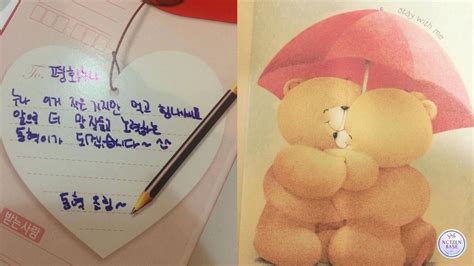 To. 평화누나
누나 이거 작은거지만 먹고 힘내세요
앞으로 더 말 잘듣고 노력하는
동혁이가 되겠습니다~ ^^
동혁 올림~
받는사람
stay with me
NCTZEN BASE